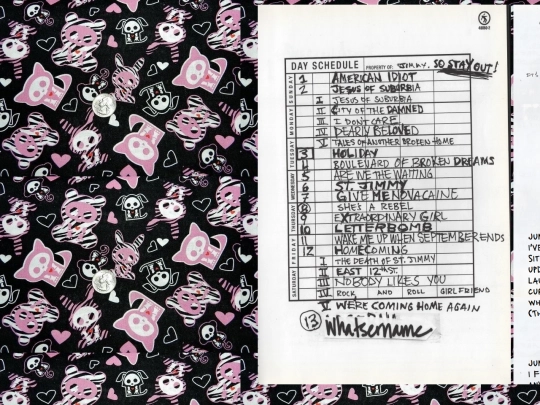 DAY SCHEDULE PROPERTY OF: JIMMY. SO STAY OUT!
SUNDAY
MONDAY
TUESDAY
WEDNESDAY
THURSDAY
FRIDAY
SATURDAY
1 AMERICAN IDIOT
2 JESUS OF SUBURBIA
I JESUS OF SUBURBIA
II CITY OF THE DAMNED
III I DON'T CARE
IV DEARLY BELOVED
V TALES OF ANOTHER BROKEN HOME
3 HOLIDAY
4 BOULEVARD OF BROKEN DREAMS
5 ARE WE THE WAITING
6 ST. JIMMY
7 GIVE ME NOVACAINE
8 SHE'S A REBEL
9 EXTRAORDINARY GIRL
10 LETTERBOMB
11 WAKE ME UP WHEN SEPTEMBER ENDS
12 HOMECOMING
I THE DEATH OF ST. JIMMY
II EAST 12TH ST.
III NOBODY LIKES YOU
IV ROCK AND ROLL GIRLFRIEND
V WE'RE COMING HOME AGAIN
13 Whatsername
JUN
I'VE
SIT
UPD
LAU
CUR
WH
(TH
JUN
I F